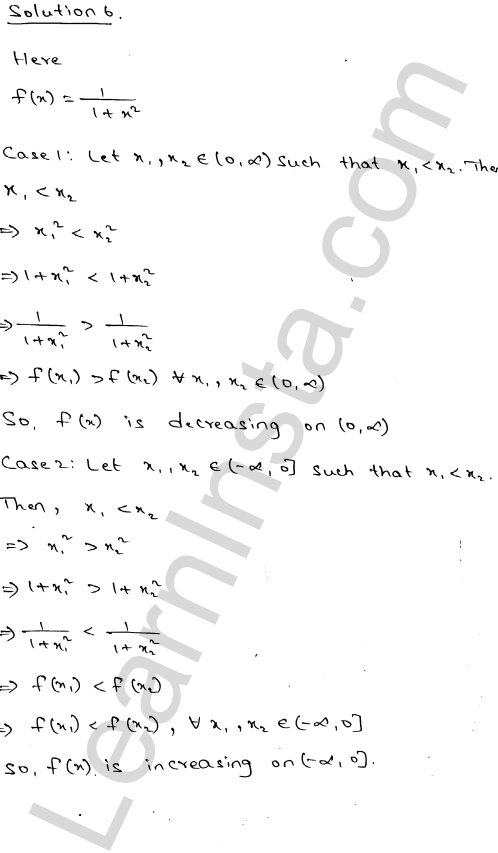 Solution 6.
Here
f(x) = 1/(1+x²)
Case 1: Let x₁, x₂ ∈ (0, ∞) such that x₁ < x₂. The
x₁ < x₂
⇒ x₁² < x₂²
⇒ 1+x₁² < 1+x₂²
⇒ 1/(1+x₁²) > 1/(1+x₂²)
⇒ f(x₁) > f(x₂) ∀ x₁, x₂ ∈ (0, ∞)
So, f(x) is decreasing on (0, ∞)
Case 2: Let x₁, x₂ ∈ (-∞, 0] such that x₁ < x₂.
Then, x₁ < x₂
⇒ x₁² > x₂²
⇒ 1+x₁² > 1+x₂²
⇒ 1/(1+x₁²) < 1/(1+x₂²)
⇒ f(x₁) < f(x₂)
⇒ f(x₁) < f(x₂), ∀ x₁, x₂ ∈ (-∞, 0]
So, f(x) is increasing on (-∞, 0].
LearnInsta.com